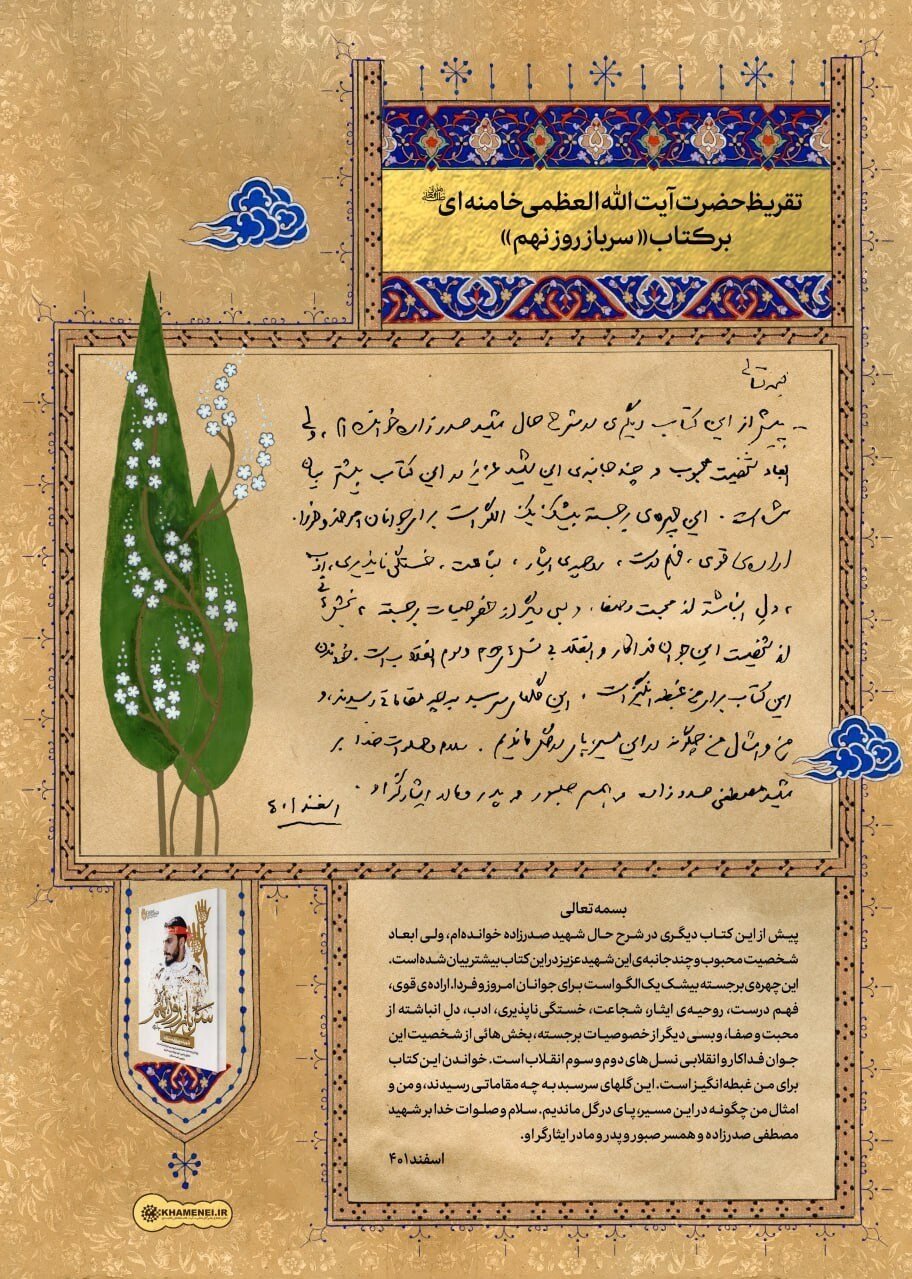 تقریظ حضرت آیت الله العظمی خامنه ای
بر کتاب «سرباز روز نهم»
بسمه تعالی
- پیش از این کتاب دیگری در شرح حال شهید صدرزاده خوانده‌ام، ولی
ابعاد شخصیت محبوب و چند جانبه‌ی این شهید عزیز در این کتاب بیشتر بیان
شده است. این چهره‌ی برجسته بیشک یک الگو است برای جوانان امروز و فردا.
اراده‌ی قوی، فهم درست، روحیه‌ی ایثار، شجاعت، خستگی ناپذیری، ادب
، دل انباشته از محبت و صفا، و بسی دیگر از خصوصیات برجسته، بخش هائی
از شخصیت این جوان فداکار و انقلابی نسل های دوم و سوم انقلاب است. خواندن
این کتاب برای من غبطه انگیز است. این گلهای سرسبد به چه مقاماتی رسیدند، و
من و امثال من چگونه در این مسیر، پای در گل ماندیم. سلام و صلوات خدا بر
شهید مصطفی صدرزاده و همسر صبور و پدر و مادر ایثارگر او.
اسفند ۴۰۱
بسمه تعالی
پیش از این کتاب دیگری در شرح حال شهید صدرزاده خوانده‌ام، ولی ابعاد
شخصیت محبوب و چند جانبه‌ی این شهید عزیز در این کتاب بیشتر بیان شده است.
این چهره‌ی برجسته بیشک یک الگو است برای جوانان امروز و فردا. اراده‌ی قوی،
فهم درست، روحیه‌ی ایثار، شجاعت، خستگی ناپذیری، ادب، دل انباشته از
محبت و صفا، و بسی دیگر از خصوصیات برجسته، بخش هائی از شخصیت این
جوان فداکار و انقلابی نسل های دوم و سوم انقلاب است. خواندن این کتاب
برای من غبطه انگیز است. این گلهای سرسبد به چه مقاماتی رسیدند، و من و
امثال من چگونه در این مسیر، پای در گل ماندیم. سلام و صلوات خدا بر شهید
مصطفی صدرزاده و همسر صبور و پدر و مادر ایثارگر او.
اسفند ۴۰۱
سرباز روز نهم
KHAMENEI.IR